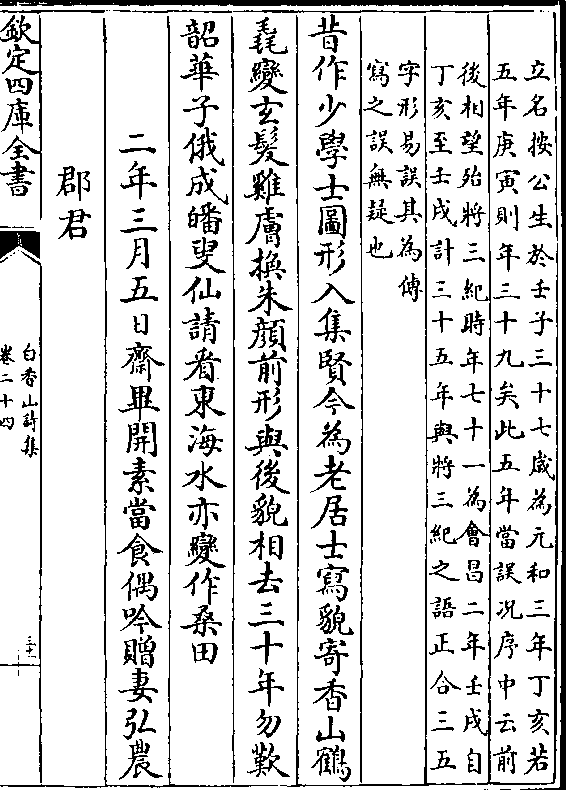 立名按公生於壬子三十七歲為元和三年丁亥若
五年庚寅則年三十九矣此五年當誤况序中云前
後相望殆將三紀時年七十一為會昌二年壬戌自
丁亥至壬戌計三十五年與將三紀之語正合三五
字形易誤其為傳
寫之誤無疑也
昔作少學士圖形入集賢今為老居士寫貌寄香山鶴
毳變玄髮雞膚換朱顔前形與後貌相去三十年勿歎
韶華子俄成皤叟仙請看東海水亦變作桑田
二年三月五日齋畢開素當食偶吟贈妻弘農
郡君
欽定四庫全書
白香山詩集
卷二十四